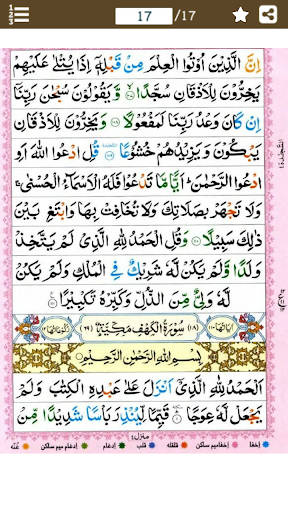 17 /17
اِنَّ الَّذِيْنَ اُوْتُوا الْعِلْمَ مِنْ قَبْلِهٖۤ اِذَا يُتْلٰى عَلَيْهِمْ
يَخِرُّوْنَ لِلْاَذْقَانِ سُجَّدًا ۙ وَّ يَقُوْلُوْنَ سُبْحٰنَ رَبِّنَاۤ
اِنْ كَانَ وَعْدُ رَبِّنَا لَمَفْعُوْلًا وَ يَخِرُّوْنَ لِلْاَذْقَانِ
يَبْكُوْنَ وَ يَزِيْدُهُمْ خُشُوْعًا قُلِ ادْعُوا اللّٰهَ اَوِ
ادْعُوا الرَّحْمٰنَ ؕ اَيًّا مَّا تَدْعُوْا فَلَهُ الْاَسْمَآءُ الْحُسْنٰى ۚ
وَ لَا تَجْهَرْ بِصَلَاتِكَ وَ لَا تُخَافِتْ بِهَا وَ ابْتَغِ بَيْنَ
ذٰلِكَ سَبِيْلًا وَ قُلِ الْحَمْدُ لِلّٰهِ الَّذِيْ لَمْ يَتَّخِذْ
وَلَدًا وَّ لَمْ يَكُنْ لَّهٗ شَرِيْكٌ فِي الْمُلْكِ وَ لَمْ يَكُنْ
لَّهٗ وَلِيٌّ مِّنَ الذُّلِّ وَ كَبِّرْهُ تَكْبِيْرًا
(١٨) سُوْرَةُ الْكَهْفِ مَكِّيَّةٌ (٦٩)
بِسْمِ اللّٰهِ الرَّحْمٰنِ الرَّحِيْمِ
اَلْحَمْدُ لِلّٰهِ الَّذِيْۤ اَنْزَلَ عَلٰى عَبْدِهِ الْكِتٰبَ وَ لَمْ
يَجْعَلْ لَّهٗ عِوَجًا قَيِّمًا لِّيُنْذِرَ بَاْسًا شَدِيْدًا مِّنْ
منزل
اخفا اخفا میم ساکن قلقله قلب ادغام ادغام میم ساکن غنّه